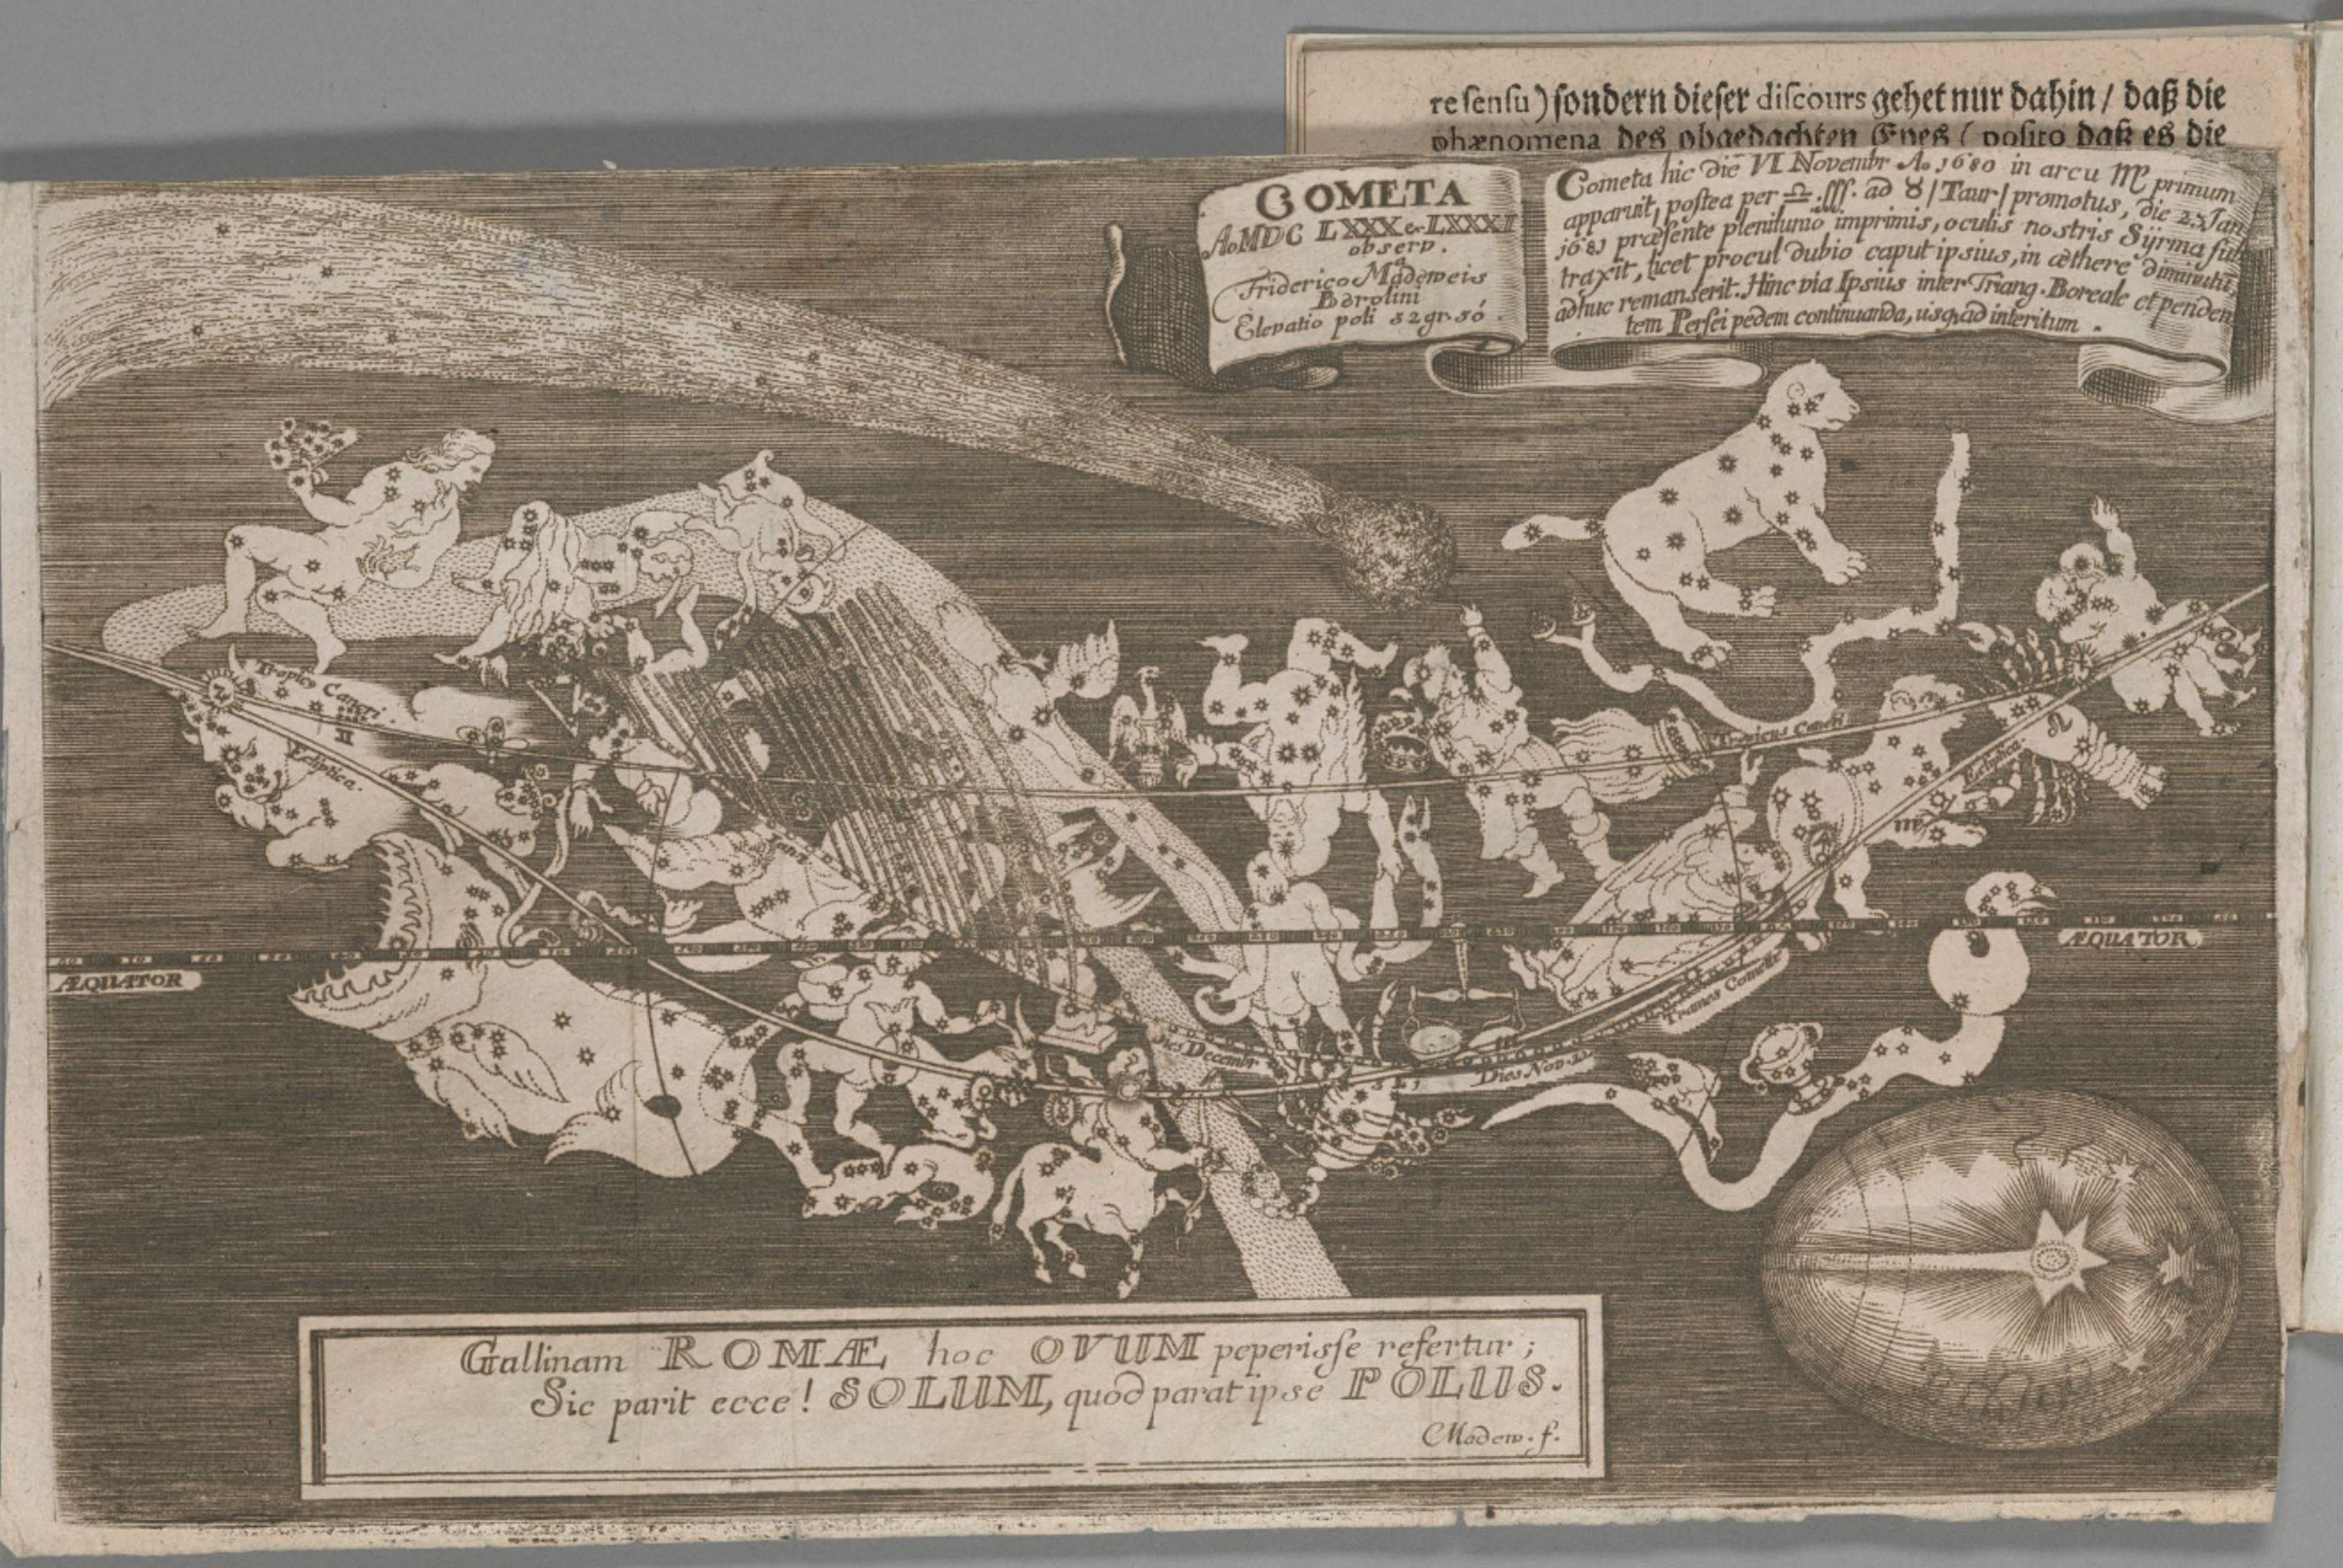 re sensu) sondern dieser discours gehet nur dahin / daß die
phænomena des obgedachten Eyes ( posito daß es die
COMETA
Ao MDC LXXX & LXXXI
observ.
a
Friderico Madeweis
Berolini
Elevatio poli 52 gr. 50
Cometa hic die VI Novembr Ao 1680 in arcu ♍ primum
apparuit, postea per ♎ . ad ♉ /Taur/ promotus, die 23 Jan
1681 præsente plenilunio imprimis, oculis nostris Syrma
traxit, licet procul dubio caput ipsius, in æthere
adhuc remanserit. Hinc via Ipsius inter Triang. Boreale et penden
tem Persei pedem continuanda, usq; ad interitum .
Tropicus Cancri
♊
Ecliptica.
Tropicus Cancri
♌
Ecliptica.
♍
ÆQUATOR
ÆQUATOR
Trames Cometæ
Dies Decembr
Dies Nov.
Gallinam ROMÆ hoc OVUM peperisse refertur ;
Sic parit ecce! SOLUM, quod parat ipse POLUS.
Madew. f.